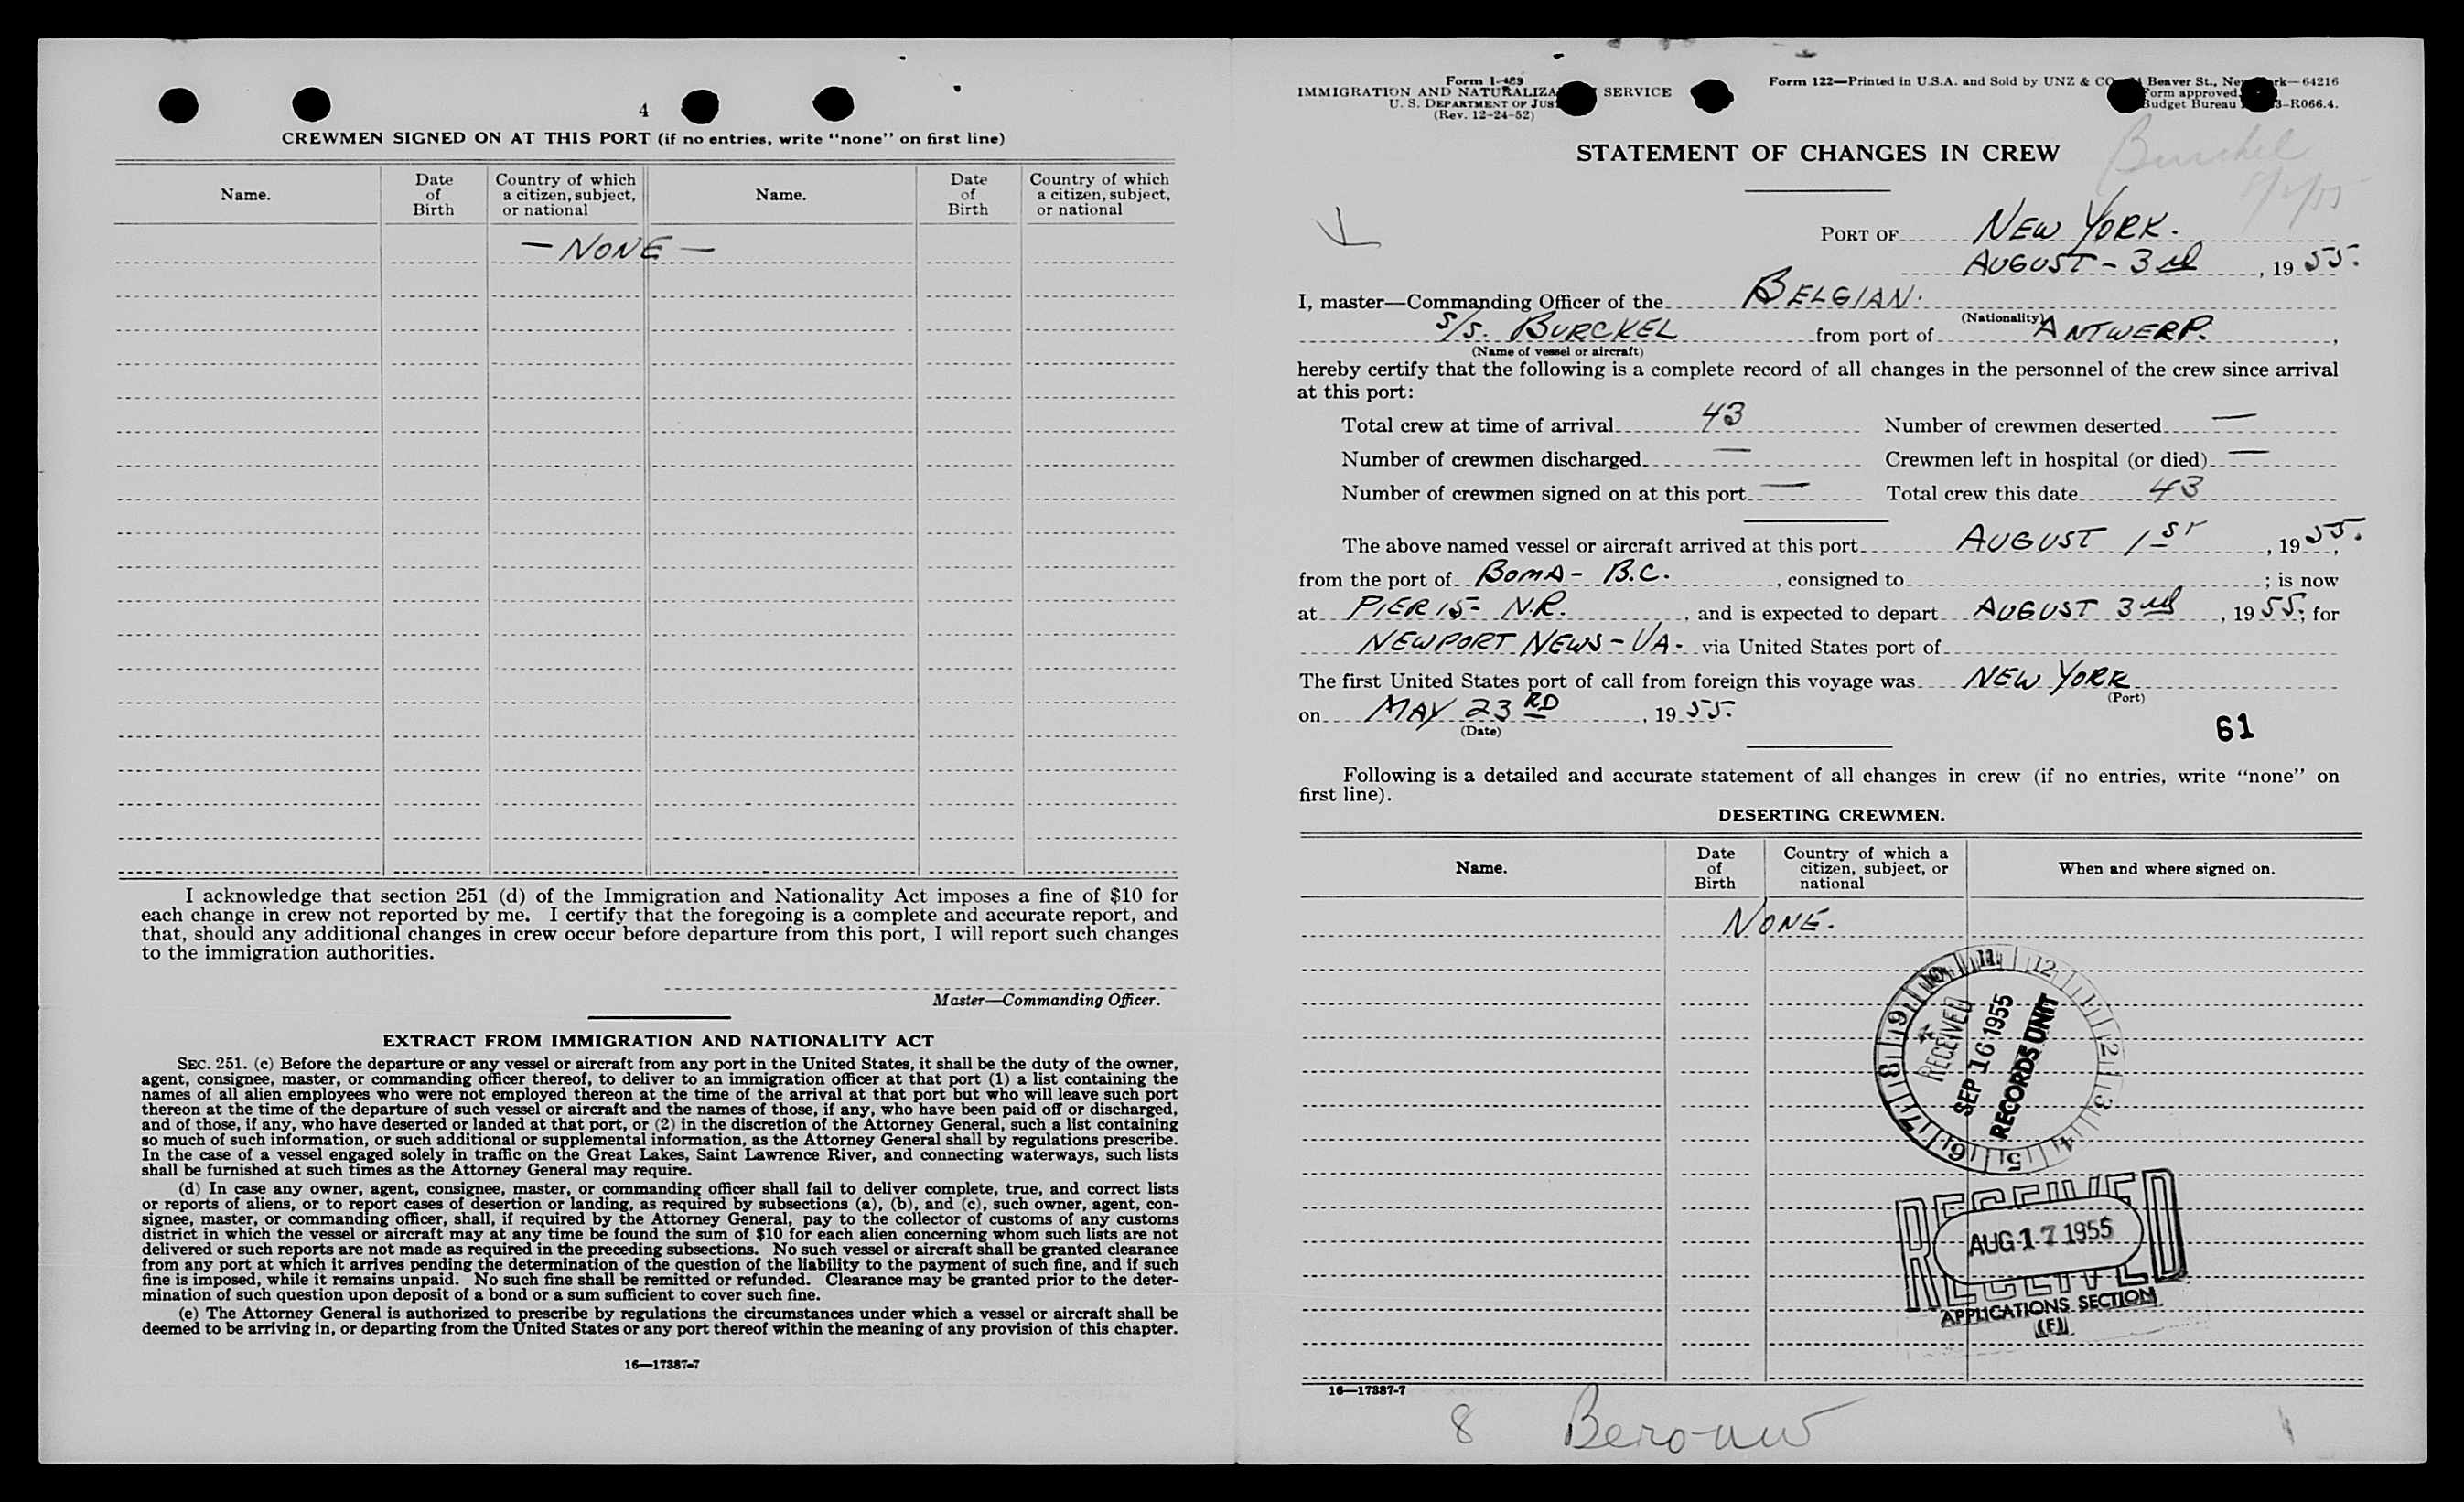 4
CREWMEN SIGNED ON AT THIS PORT (if no entries, write "none" on first line)
Name. Date of Birth Country of which a citizen, subject, or national Name. Date of Birth Country of which a citizen, subject, or national
— NONE —
I acknowledge that section 251 (d) of the Immigration and Nationality Act imposes a fine of $10 for
each change in crew not reported by me. I certify that the foregoing is a complete and accurate report, and
that, should any additional changes in crew occur before departure from this port, I will report such changes
to the immigration authorities.
Master—Commanding Officer.
EXTRACT FROM IMMIGRATION AND NATIONALITY ACT
SEC. 251. (c) Before the departure or any vessel or aircraft from any port in the United States, it shall be the duty of the owner,
agent, consignee, master, or commanding officer thereof, to deliver to an immigration officer at that port (1) a list containing the
names of all alien employees who were not employed thereon at the time of the arrival at that port but who will leave such port
thereon at the time of the departure of such vessel or aircraft and the names of those, if any, who have been paid off or discharged,
and of those, if any, who have deserted or landed at that port, or (2) in the discretion of the Attorney General, such a list containing
so much of such information, or such additional or supplemental information, as the Attorney General shall by regulations prescribe.
In the case of a vessel engaged solely in traffic on the Great Lakes, Saint Lawrence River, and connecting waterways, such lists
shall be furnished at such times as the Attorney General may require.
(d) In case any owner, agent, consignee, master, or commanding officer shall fail to deliver complete, true, and correct lists
or reports of aliens, or to report cases of desertion or landing, as required by subsections (a), (b), and (c), such owner, agent, con-
signee, master, or commanding officer, shall, if required by the Attorney General, pay to the collector of customs of any customs
district in which the vessel or aircraft may at any time be found the sum of $10 for each alien concerning whom such lists are not
delivered or such reports are not made as required in the preceding subsections. No such vessel or aircraft shall be granted clearance
from any port at which it arrives pending the determination of the question of the liability to the payment of such fine, and if such
fine is imposed, while it remains unpaid. No such fine shall be remitted or refunded. Clearance may be granted prior to the deter-
mination of such question upon deposit of a bond or a sum sufficient to cover such fine.
(e) The Attorney General is authorized to prescribe by regulations the circumstances under which a vessel or aircraft shall be
deemed to be arriving in, or departing from the United States or any port thereof within the meaning of any provision of this chapter.
16—17387-7
Form I-489
IMMIGRATION AND NATURALIZA SERVICE
U. S. DEPARTMENT OF JUS
(Rev. 12-24-52)
Form 122—Printed in U.S.A. and Sold by UNZ & CO Beaver St., New rk—64216
Form approved.
Budget Bureau 3-R066.4.
Burckel
STATEMENT OF CHANGES IN CREW
PORT OF NEW YORK.
AUGUST - 3rd, 1955.
I, master—Commanding Officer of the BELGIAN.
(Nationality)
S/S. BURCKEL from port of ANTWERP.,
(Name of vessel or aircraft)
hereby certify that the following is a complete record of all changes in the personnel of the crew since arrival
at this port:
Total crew at time of arrival 43 Number of crewmen deserted —
Number of crewmen discharged — Crewmen left in hospital (or died) —
Number of crewmen signed on at this port — Total crew this date 43
The above named vessel or aircraft arrived at this port AUGUST 1ST, 1955.,
from the port of BOMA - B.C., consigned to ; is now
at PIER 15 - N.R., and is expected to depart AUGUST 3rd, 1955.; for
NEWPORT NEWS - VA. via United States port of
The first United States port of call from foreign this voyage was NEW YORK
(Port)
on MAY 23RD, 1955.
(Date)
61
Following is a detailed and accurate statement of all changes in crew (if no entries, write "none" on
first line).
DESERTING CREWMEN.
Name. Date of Birth Country of which a citizen, subject, or national When and where signed on.
NONE.
10 11 12 1 2 3 4 5 6 7 8 9
RECEIVED
SEP 16 1955
RECORDS UNIT
RECEIVED
AUG 17 1955
RECEIVED
APPLICATIONS SECTION
(F)
16—17387-7
8